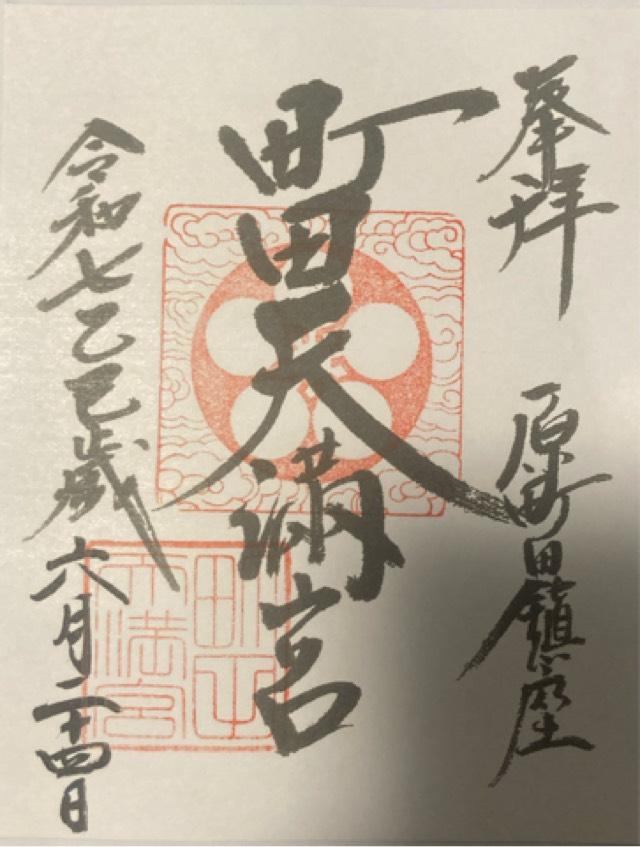 奉拝
原町田鎮座
町田天満宮
令和七乙巳歳六月二十四日
町田天満宮